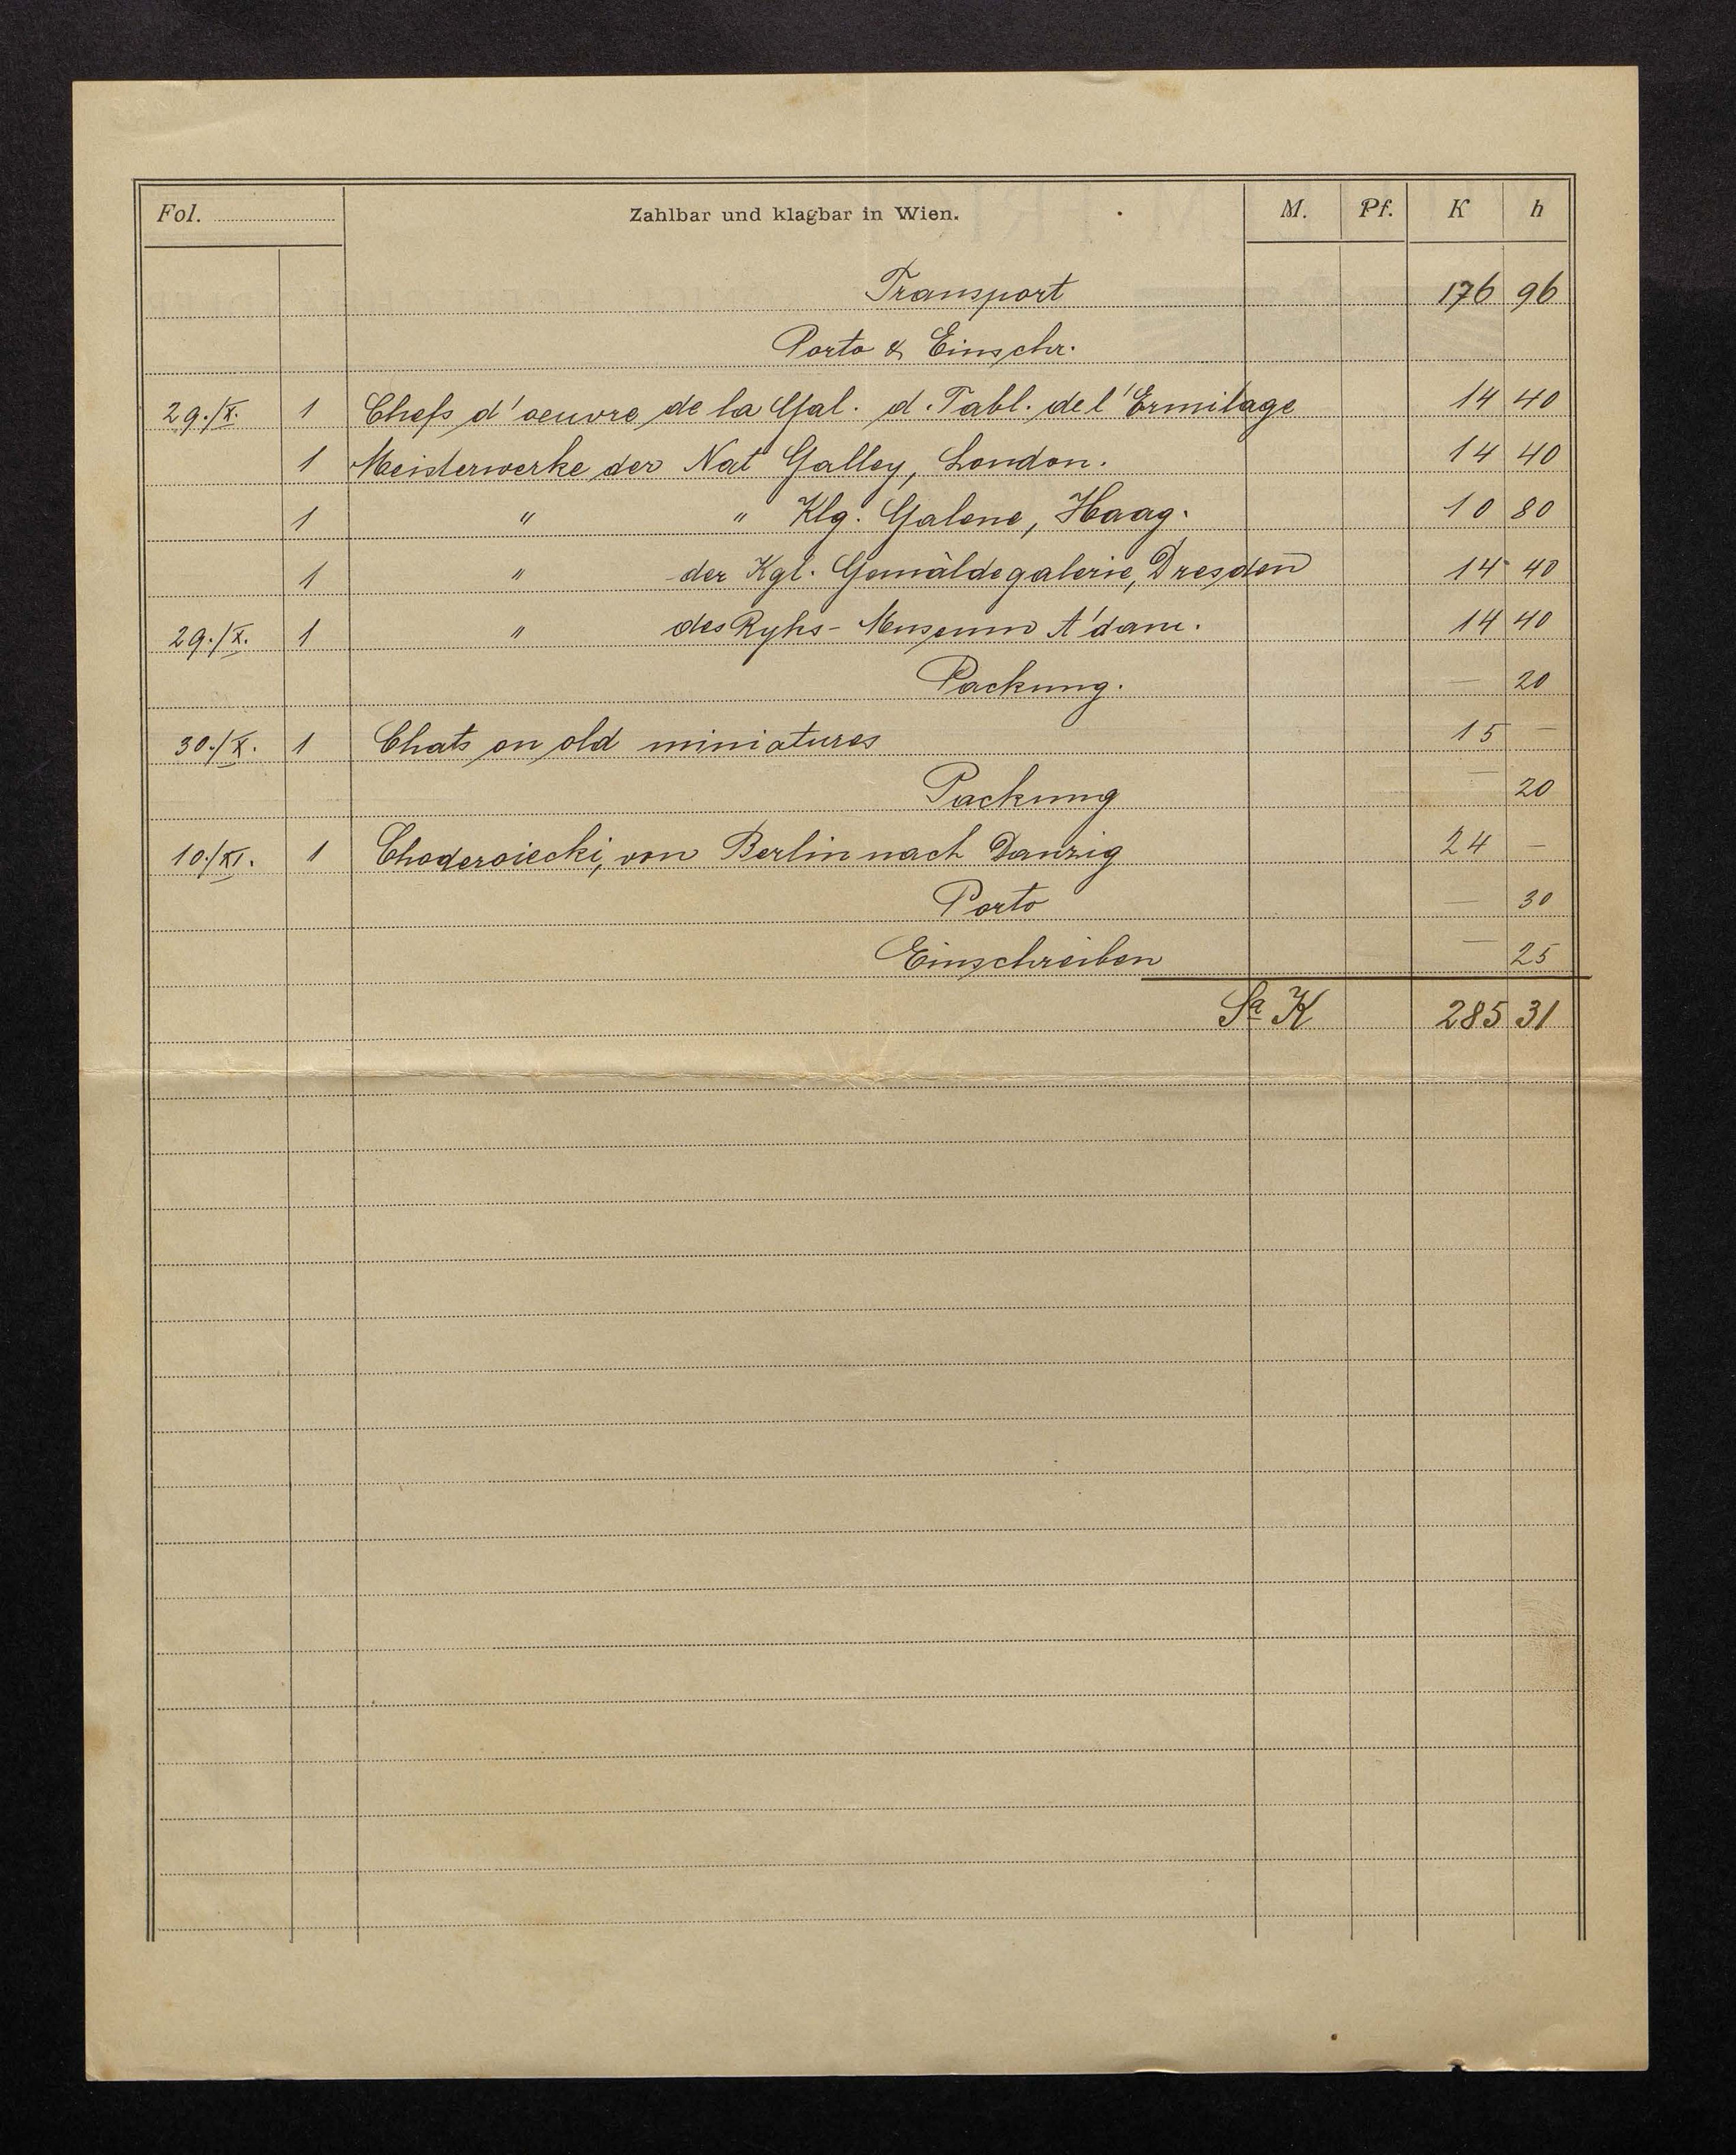 Fol. Zahlbar und klagbar in Wien. M. Pf. K h
Transport 176 96
Porto & Einschr.
29./X. 1 Chefs d'oeuvre de la Gal. d. Tabl. de l'Ermitage 14 40
1 Meisterwerke der Nat Galley, London. 14 40
1 " " Klg. Galerie, Haag. 10 80
1 " der Kgl. Gemäldegalerie, Dresden 14 40
29./X. 1 " des Ryks-Museum A'dam. 14 40
Packung. — 20
30./X. 1 Chats on old miniatures 15 —
Packung — 20
10./XI. 1 Choderoiecki, von Berlin nach Danzig 24 —
Porto — 30
Einschreiben — 25
Sa K 285 31